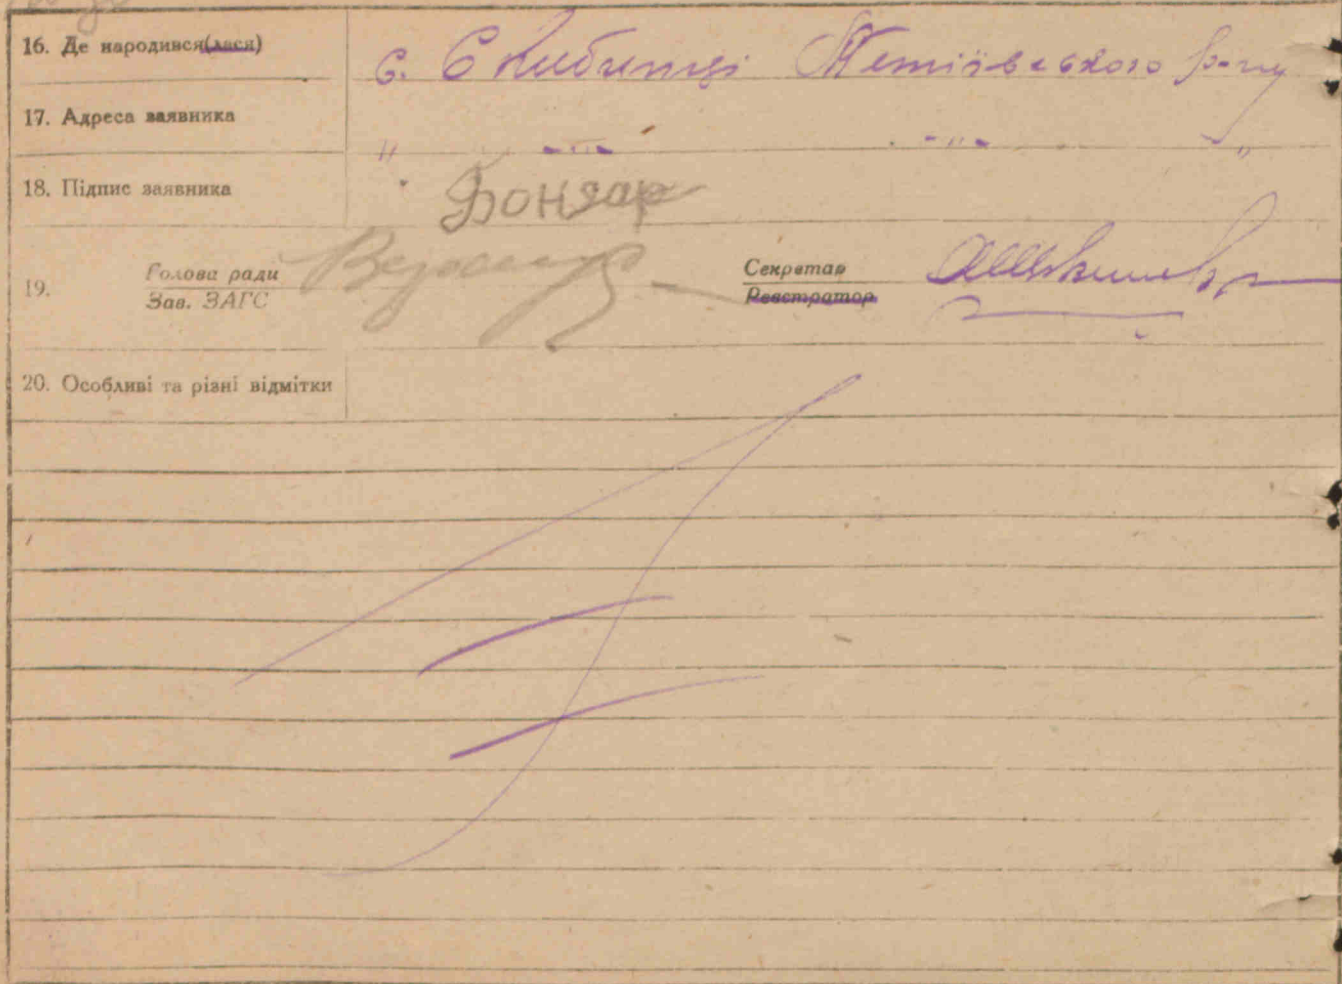 16. Де народився(лася) с. Скибинці Тетіївського р-ну
17. Адреса заявника " -"- -"- "
18. Підпис заявника Бондар
19. Голова ради Секретар
Зав. ЗАГС Реєстратор
20. Особливі та різні відмітки